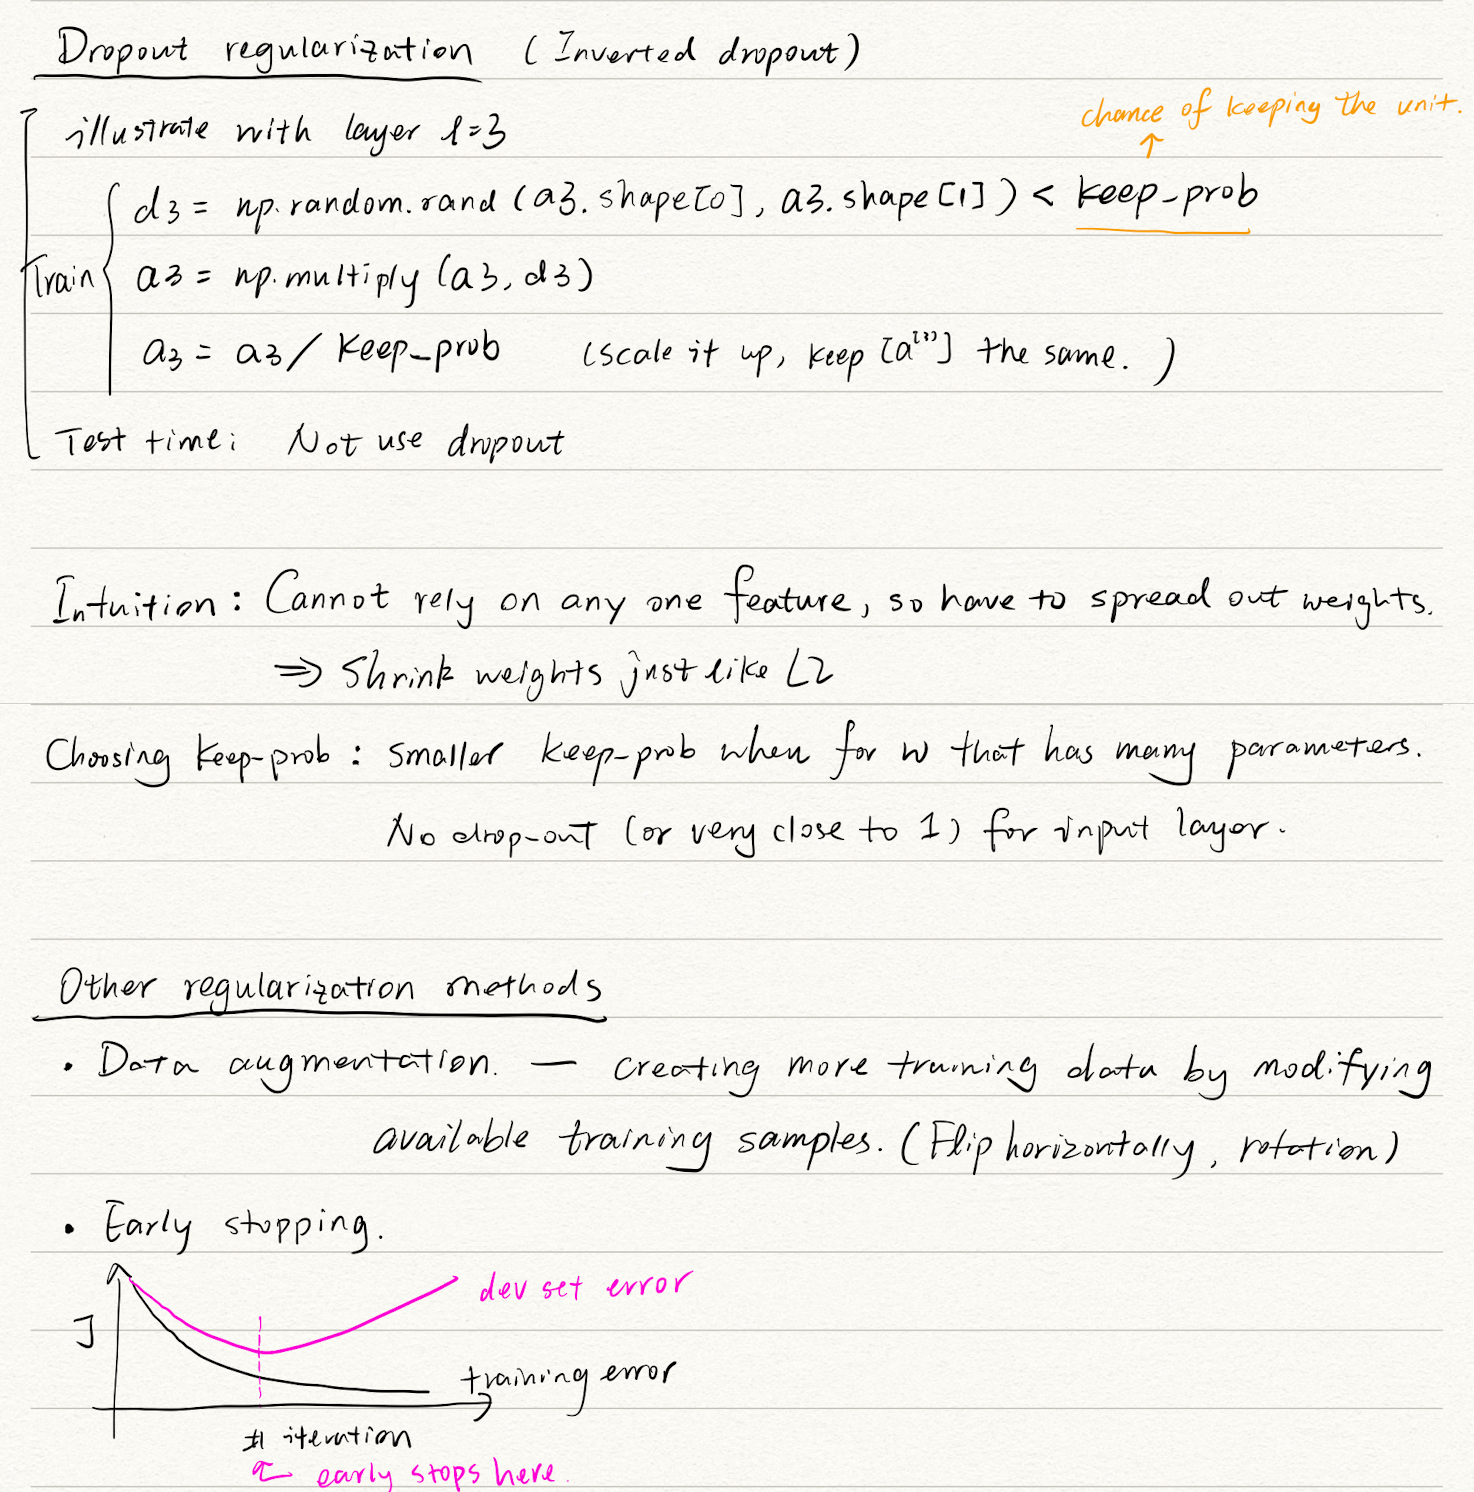 Dropout regularization (Inverted dropout)
chance of keeping the unit.
illustrate with layer l=3
d3 = np.random.rand (a3.shape[0], a3.shape[1]) < keep_prob
Train
a3 = np.multiply (a3, d3)
a3 = a3 / keep_prob (scale it up, keep [a[3]] the same. )
Test time: Not use dropout
Intuition: Cannot rely on any one feature, so have to spread out weights.
⇒ Shrink weights just like L2
Choosing keep-prob: smaller keep-prob when for w that has many parameters.
No drop-out (or very close to 1) for input layer.
Other regularization methods
• Data augmentation. — creating more training data by modifying
available training samples. (Flip horizontally, rotation)
• Early stopping.
dev set error
J
training error
# iteration
early stops here.